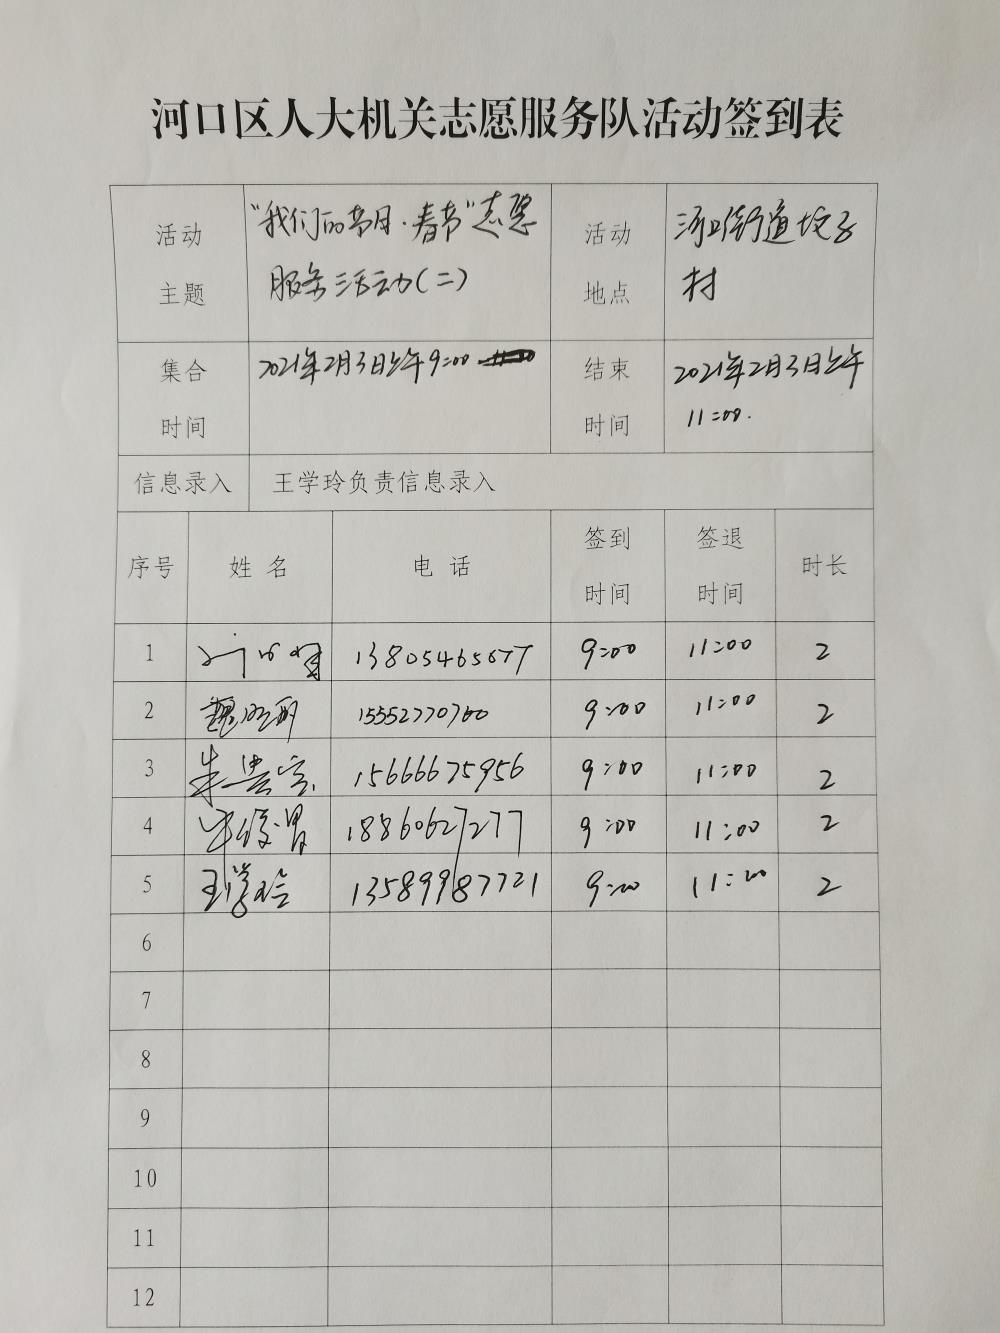 河口区人大机关志愿服务队活动签到表
活动
主题
“我们的节日·春节”志愿
服务活动(二)
活动
地点
河口街道坟子
村
集合
时间
2021年2月3日上午9:00
结束
时间
2021年2月3日上午
11:00.
信息录入 王学玲负责信息录入
序号 姓名 电话 签到时间 签退时间 时长
1 13805465677 9:00 11:00 2
2 15552770760 9:00 11:00 2
3 朱贵宗 15666675956 9:00 11:00 2
4 18860627277 9:00 11:00 2
5 王学玲 13589987721 9:00 11:00 2
6
7
8
9
10
11
12